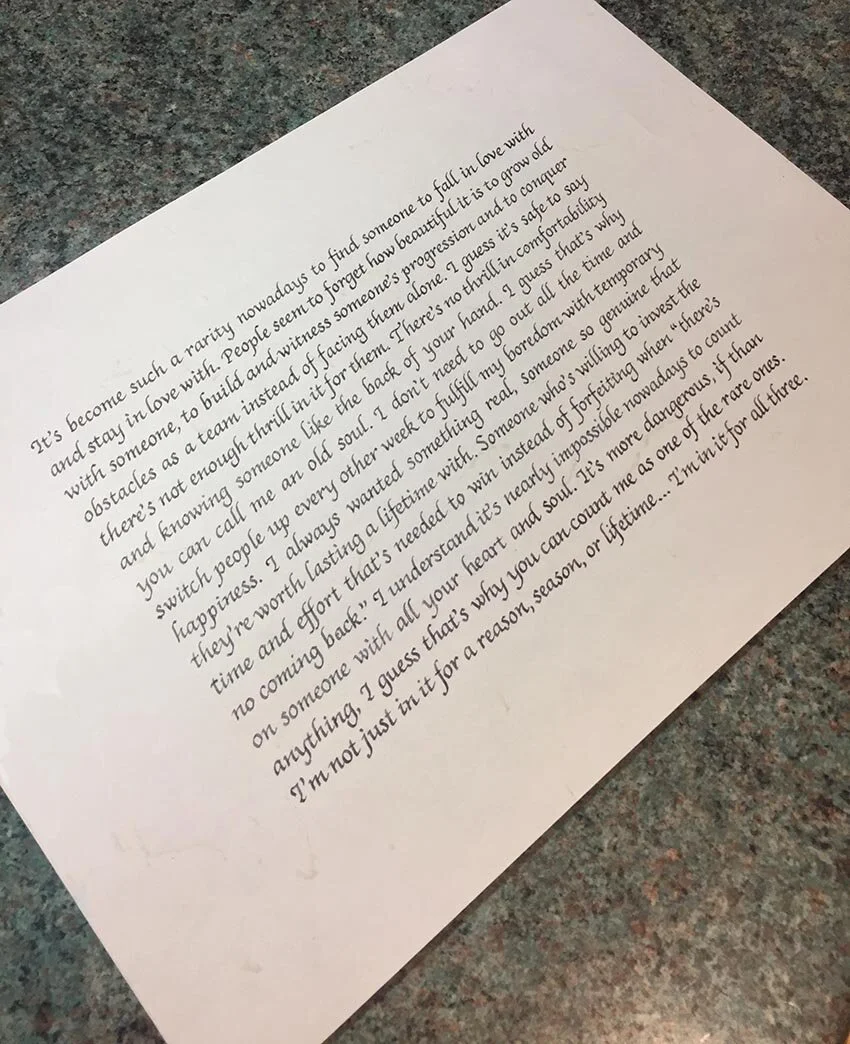 It's become such a rarity nowadays to find someone to fall in love with
and stay in love with. People seem to forget how beautiful it is to grow old
with someone, to build and witness someone's progression and to conquer
obstacles as a team instead of facing them alone. I guess it's safe to say
there's not enough thrill in it for them. There's no thrill in comfortability
and knowing someone like the back of your hand. I guess that's why
you can call me an old soul. I don't need to go out all the time and
switch people up every other week to fulfill my boredom with temporary
happiness. I always wanted something real, someone so genuine that
they're worth lasting a lifetime with. Someone who's willing to invest the
time and effort that's needed to win instead of forfeiting when "there's
no coming back." I understand it's nearly impossible nowadays to count
on someone with all your heart and soul. It's more dangerous, if than
anything, I guess that's why you can count me as one of the rare ones.
I'm not just in it for a reason, season, or lifetime... I'm in it for all three.